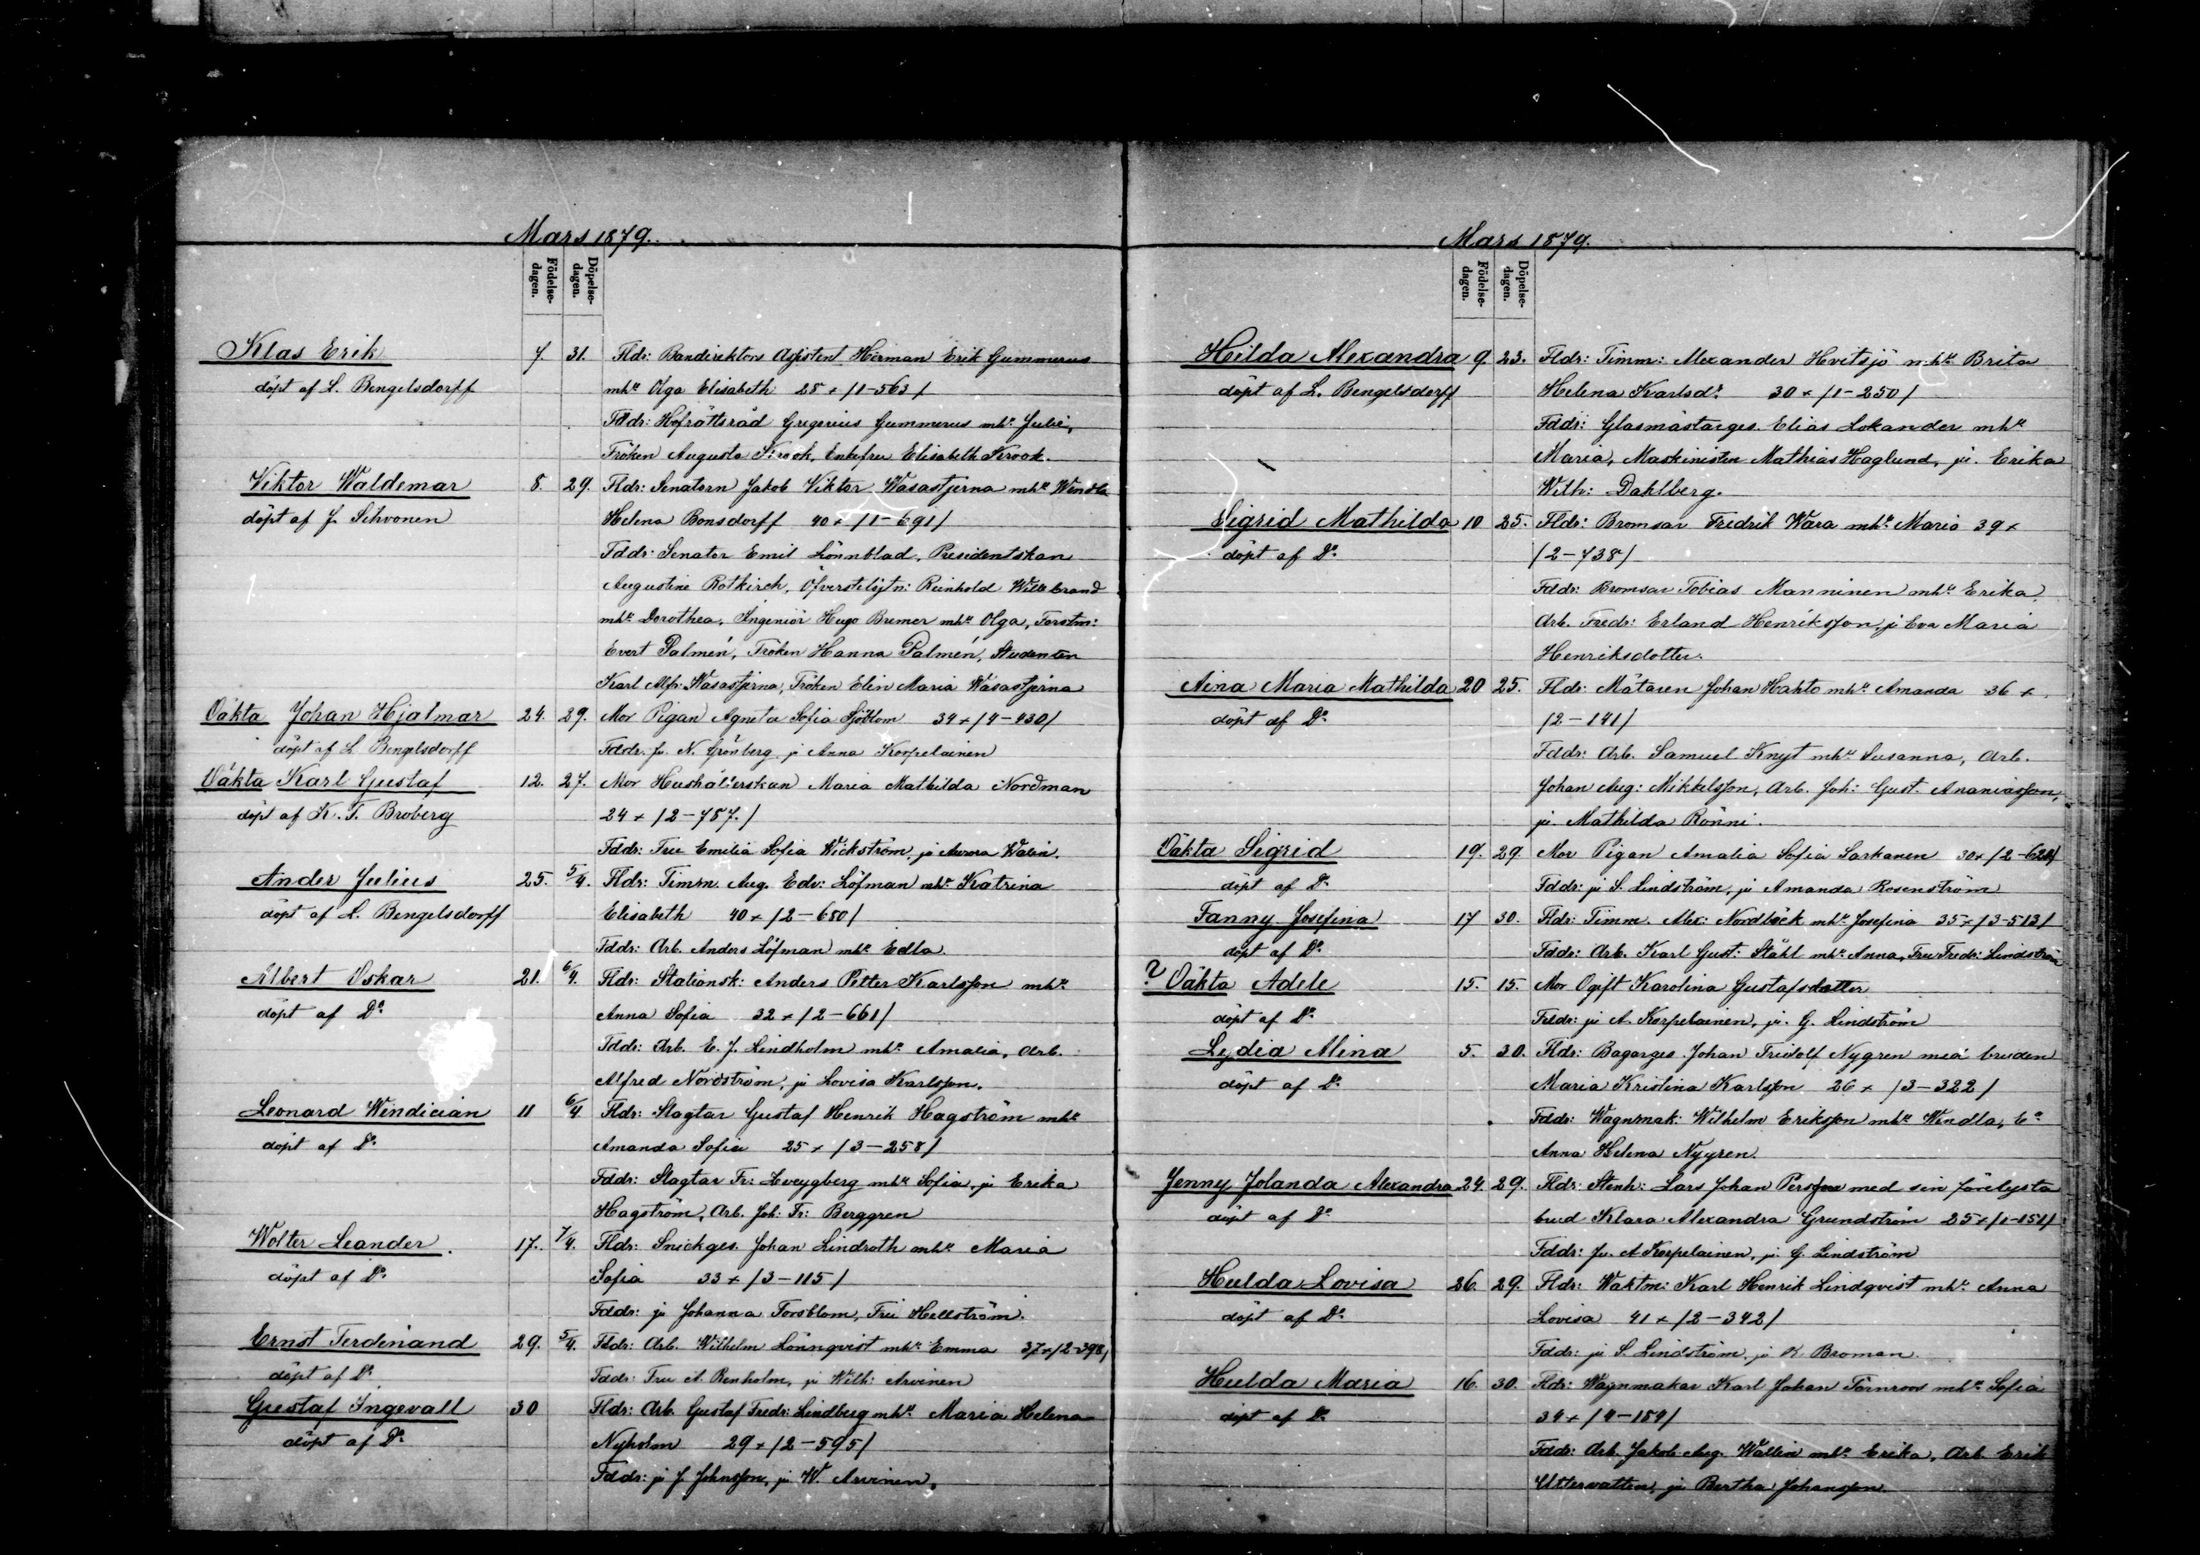 Mars 1879.
Födelse-dagen. Döpelse-dagen.
Klas Erik 7 31. Fldr: Bandirektors Assistent Herman Erik Gummerus
döpt af L. Bengelsdorff mhu Olga Elisabeth 28 + /1-563/
Fddr: Hofrättsråd Gregerius Gummerus mhu Julie,
Fröken Augusta Krook, Enkefru Elisabeth Krook.
Viktor Waldemar 8. 29. Fldr: Senatorn Jakob Viktor Wasastjerna mhu Wendla
döpt af J. Sihvonen Helena Bonsdorff 40 + /1-691/
Fddr: Senator Emil Lönnblad, Presidentskan
Augustine Rotkirch, Öfverstelöjtn: Reinhold Willebrand
mhu Dorothea, Ingeniör Hugo Bremer mhu Olga, Forstm:
Evert Palmén, Fröken Hanna Palmén, Studenten
Karl Alfr: Wasastjerna, Fröken Elin Maria Wasastjerna
Oäkta Johan Hjalmar 24. 29. Mor Pigan Agneta Sofia Sjöblom 34 + /4-430/
döpt af L Bengelsdorff Fddr: ju N. Grönberg, ju Anna Korpelainen
Oäkta Karl Gustaf 12. 27. Mor Hushållerskan Maria Mathilda Nordman
döpt af K. T. Broberg 24 + /2-757./
Fddr: Fru Emilia Sofia Wickström, ju Aurora Walin.
Ander Julius 25. 5/4. Fldr: Timm. Aug. Edv: Löfman mhu Katrina
döpt af L. Bengelsdorff Elisabeth 40 + /2-680/
Fddr: Arb. Anders Löfman mhu Edla.
Albert Oskar 21. 6/4. Fldr: Stationsk: Anders Petter Karlsson mhu
döpt af Do Anna Sofia 32 + /2-661/
Fddr: Arb. E. J. Lindholm mhu Amalia, Arb.
Alfred Nordström, ju Lovisa Karlsson.
Leonard Windician 11 6/4. Fldr: Slagtar Gustaf Henrik Hagström mhu
döpt af Do Amanda Sofia 25 + /3-258/
Fddr: Slagtar Fr: Zweygberg mhu Sofia, ju Erika
Hagström, Arb. Joh: Fr: Berggren
Wolter Leander. 17. 7/4. Fldr: Snickges. Johan Lindroth mhu Maria
döpt af Do Sofia 33 + /3-115/
Fddr: ju Johanna Forsblom, Fru Hellström.
Ernst Ferdinand 29. 5/4. Fldr: Arb. Wilhelm Lönnqvist mhu Emma 37 + /2-398/
döpt af Do Fddr: Fru A. Renholm, ju Wilh: Arvinen
Gustaf Ingevall 30 Fldr: Arb. Gustaf Fredr: Lindberg mhu Maria Helena
döpt af Do Nyholm 29 + /2-595/
Fddr: ju J. Johnsson, ju W. Arvinen.
Mars 1879.
Födelse-dagen. Döpelse-dagen.
Hilda Alexandra 9 23. Fldr: Timm: Alexander Hvitsjö mhu Brita
döpt af L. Bengelsdorff Helena Karlsdr 30 + /1-250/
Fddr: Glasmästarges. Elias Lokander mhu
Maria, Maskinisten Mathias Haglund, ju. Erika
Wilh: Dahlberg.
Sigrid Mathilda 10 25. Fldr: Bromsar Fredrik Wara mhu Maria 39 +
döpt af Do /2-738/
Fddr: Bromsar Tobias Manninen mhu Erika
Arb. Fredr: Erland Henriksson, ju Eva Maria
Henriksdotter.
Aina Maria Mathilda 20 25. Fldr: Mätaren Johan Hahto mhu Amanda 36 +
döpt af Do /2-141/
Fddr: Arb. Samuel Knyt mhu Susanna, Arb.
Johan Aug: Mikkelsson, Arb. Joh: Gust. Ananiasson,
ju. Mathilda Rönni.
Oäkta Sigrid 19. 29. Mor Pigan Amalia Sofia Sarkanen 30 + /2-628/
döpt af Do Fddr: ju S. Lindström, ju Amanda Rosenström
Fanny Josefina 17 30. Fldr: Timm. Alex: Nordbäck mhu Josefina 35 + /3-513/
döpt af Do Fddr: Arb. Karl Gust: Ståhl mhu Anna, Fru Fredr: Lindström
? Oäkta Adele 15. 15. Mor Ogift Karolina Gustafsdotter
döpt af Do Fddr: ju A. Korpelainen, ju. G. Lindström
Lydia Alina 5. 30. Fldr: Bagarges. Johan Fridolf Nygren med bruden
döpt af Do Maria Kristina Karlsson 26 + /3-322/
Fddr: Wagnmak: Wilhelm Eriksson mhu Wendla, Ea
Anna Helena Nygren.
Jenny Jolanda Alexandra 24. 29. Fldr: Stenh: Lars Johan Persson med sin förelysta
döpt af Do brud Klara Alexandra Grundström 25 + /1-151/
Fddr: Ju. A Korpelainen, ju. G. Lindström
Hulda Lovisa 26. 29. Fldr: Waktm: Karl Henrik Lindqvist mhu Anna
döpt af Do Lovisa 41 + /2-342/
Fddr: ju S. Lindström, ju K. Broman.
Hulda Maria 16. 30. Fldr: Wagnmakar Karl Johan Törnroos mhu Sofia
döpt af Do 34 + /4-154/
Fddr: Arb. Jakob Aug. Wallin mhu Erika, Arb. Erik
Uttervatten, ju Bertha Johansson.